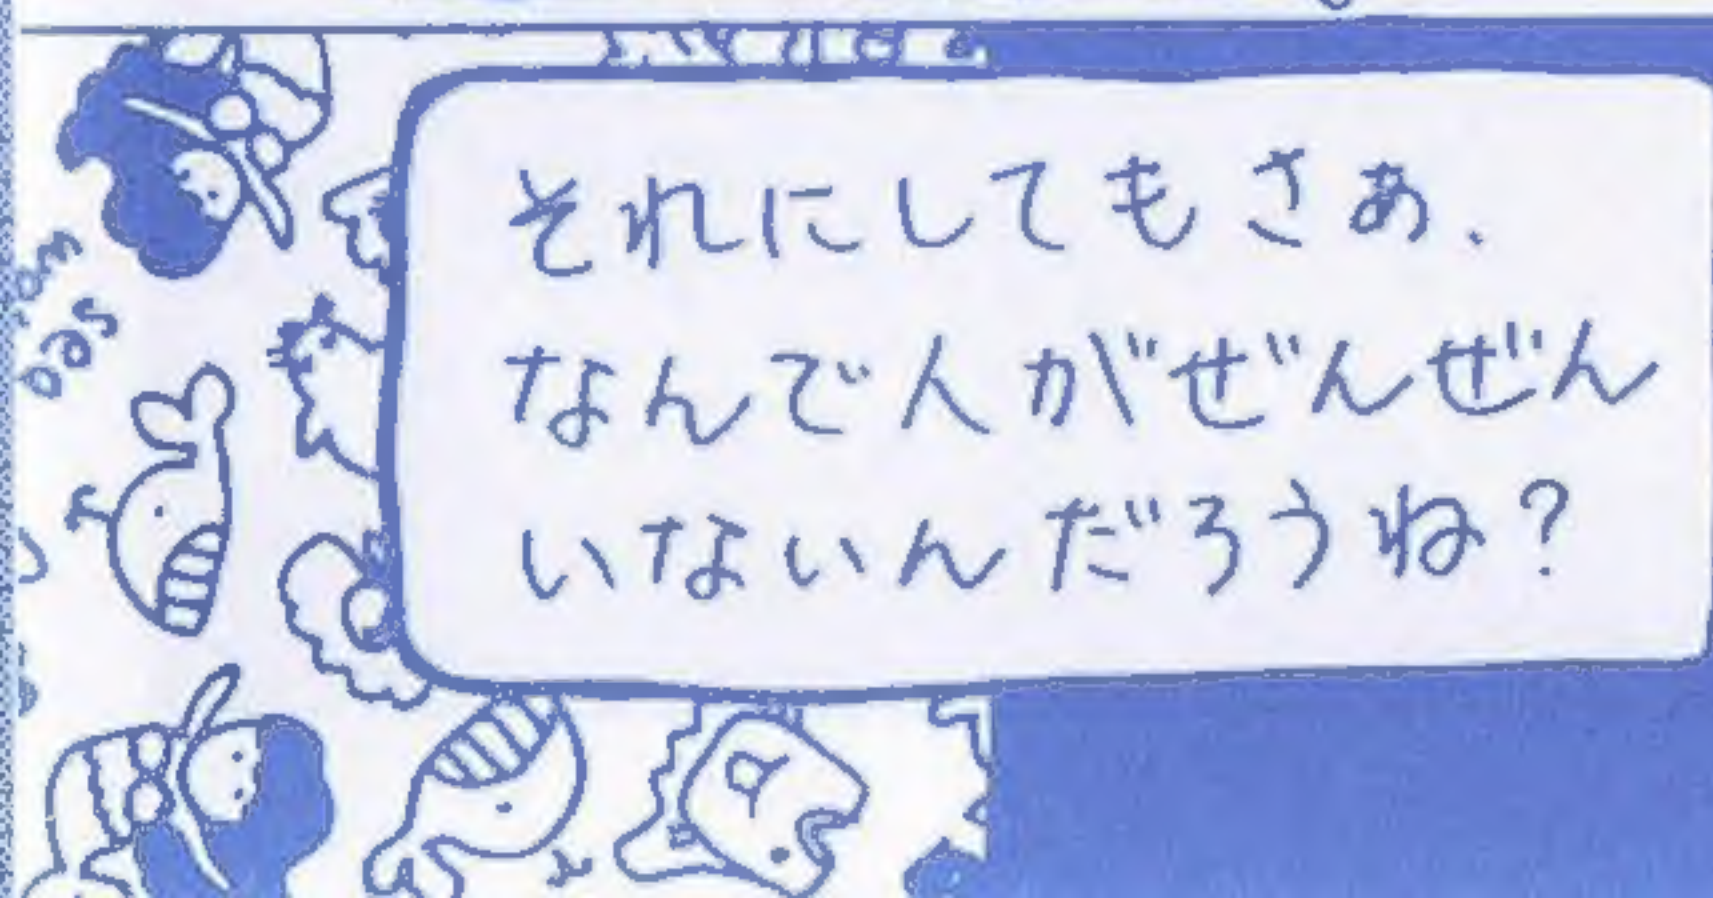 それにしてもさあ、
なんで人がぜんぜん
いないんだろうね?
sea